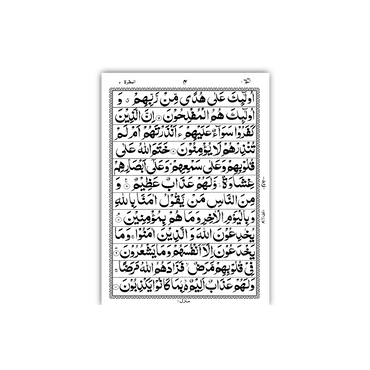 البقرة ٢
٣
الٓمّٓ ١
اُولٰٓئِكَ عَلٰى هُدًى مِّنْ رَّبِّهِمْ ۙ وَ
اُولٰٓئِكَ هُمُ الْمُفْلِحُوْنَ ۝ اِنَّ الَّذِيْنَ
كَفَرُوْا سَوَآءٌ عَلَيْهِمْ ءَاَنْذَرْتَهُمْ اَمْ لَمْ
تُنْذِرْهُمْ لَا يُؤْمِنُوْنَ ۝ خَتَمَ اللّٰهُ عَلٰى
قُلُوْبِهِمْ وَعَلٰى سَمْعِهِمْ ؕ وَعَلٰٓى اَبْصَارِهِمْ
غِشَاوَةٌ ؗ وَّلَهُمْ عَذَابٌ عَظِيْمٌ ۝ وَ
مِنَ النَّاسِ مَنْ يَّقُوْلُ اٰمَنَّا بِاللّٰهِ
وَ بِالْيَوْمِ الْاٰخِرِ وَمَا هُمْ بِمُؤْمِنِيْنَ ۝
يُخٰدِعُوْنَ اللّٰهَ وَالَّذِيْنَ اٰمَنُوْا ۚ وَمَا
يَخْدَعُوْنَ اِلَّآ اَنْفُسَهُمْ وَمَا يَشْعُرُوْنَ ۝
فِيْ قُلُوْبِهِمْ مَّرَضٌ ۙ فَزَادَهُمُ اللّٰهُ مَرَضًا ۚ
وَلَهُمْ عَذَابٌ اَلِيْمٌۢ ۙ بِمَا كَانُوْا يَكْذِبُوْنَ ۝